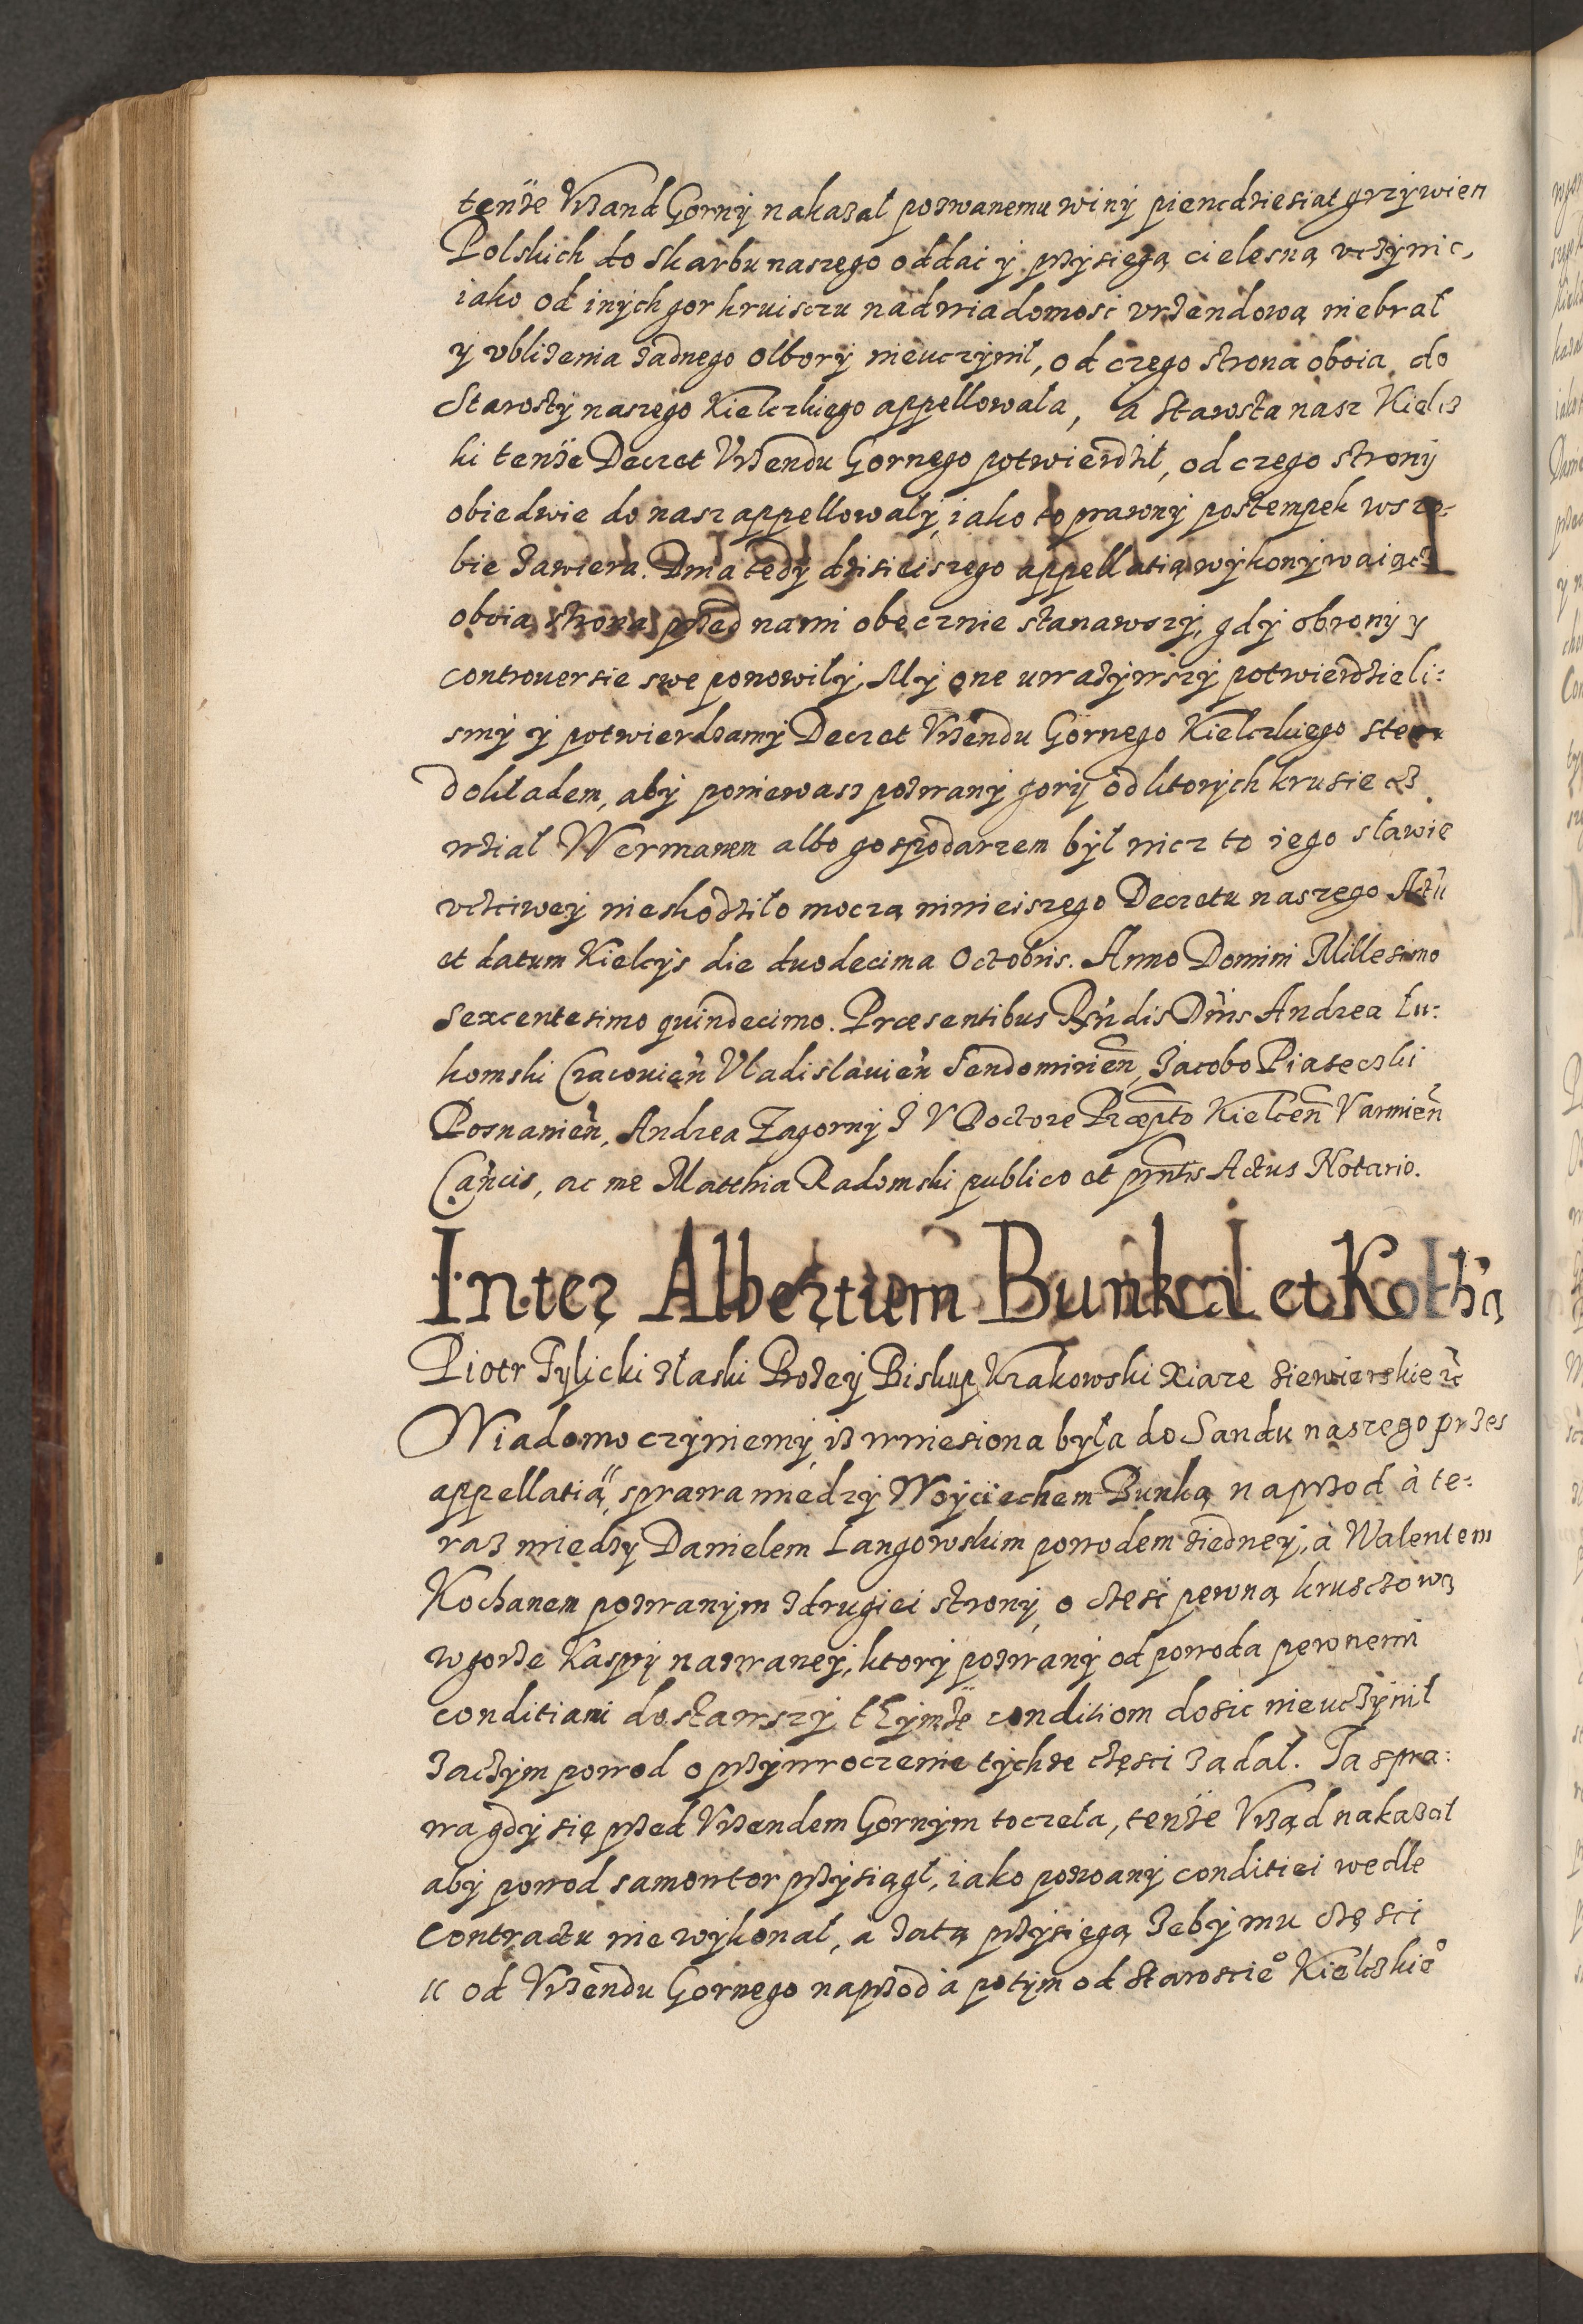 tenże Vrzand Gorny nakazał pozwanemu winy piencdziesiat grzywien
Polskich do Skarbu naszego oddać y przysięgą cielesną vczynic,
iako od inych gor kruisczu nad wiadomosc vrzendową niebrał
y vbliżenia żadnego olbory nieuczynił, od czego strona oboia do
Starosty naszego Kielczkiego appellowała, a Starosta nasz Kielcz
ki tenże Decret Vrzendu Gornego potwierdził, od czego strony
obiedwie do nasz appellowały, iako to prawny postempek w szo-
bie zawiera. Dnia tedy dzisieiszego appellatią wykonywaiącz
oboia strona przed nami obecznie stanawszy, gdy obrony y
controuersie swe ponowiły, My one uważywszy potwierdzieli:
smy y potwierdzamy Decret Vrzendu Gornego Kielczkiego stem
dokładem, aby poniewasz pozwany gory od ktorych krusiecz
wział Wermanem albo gospodarzem był nicz to iego sławie
vcżciwey nieskodziło moczą ninieiszego Decretu naszego Actu
et datum Kielcys die duodecima Octobris. Anno Domini Millesimo
sexcentesimo quindecimo. Præsentibus Rndis Dnis Andrea Lu:
komski Cracouien Vladislauien Sendomirien, Jacobo Piaseczki
Posnanien, Andrea Zagorny J V Doctore Præpto Kielcen Varmien
Cancis, ac me Matthia Radomski publico et pntis Actus Notario.
Inter Albertum Bunka et Kotha
Piotr Tylicki złaski Bożey Biskup Krakowski Xiaże Siewierskie etc
Wiadomo czyniemy, iż wniesiona była do Sandu naszego przes
appellatią, sprawa miedzy Woyciechem Bunką naprzod à te:
raz miedzy Danielem Langowskim powodem ziedney, à Walentem
Kochanem pozwanym zdrugiei strony, o części pewną krusczową
w gorze Kaspry nazwaney, ktory pozwany od powoda pewnemi
conditiami dostawszy, tżymże conditiom dosic nieuczynił
zaczym powod o przywroczenie tychże części żądał. Ta spra:
wa gdy się przed Vrzendem Gornym toczeła, tenże Vrząd nakazał
aby powod samowtor przysiągł, iako pozwany conditiei wedle
Contractu nie wykonał, a zatą przysięgą żeby mu części
od Vrzendu Gornego naprzod a potym od Staroscie° Kielczkie°